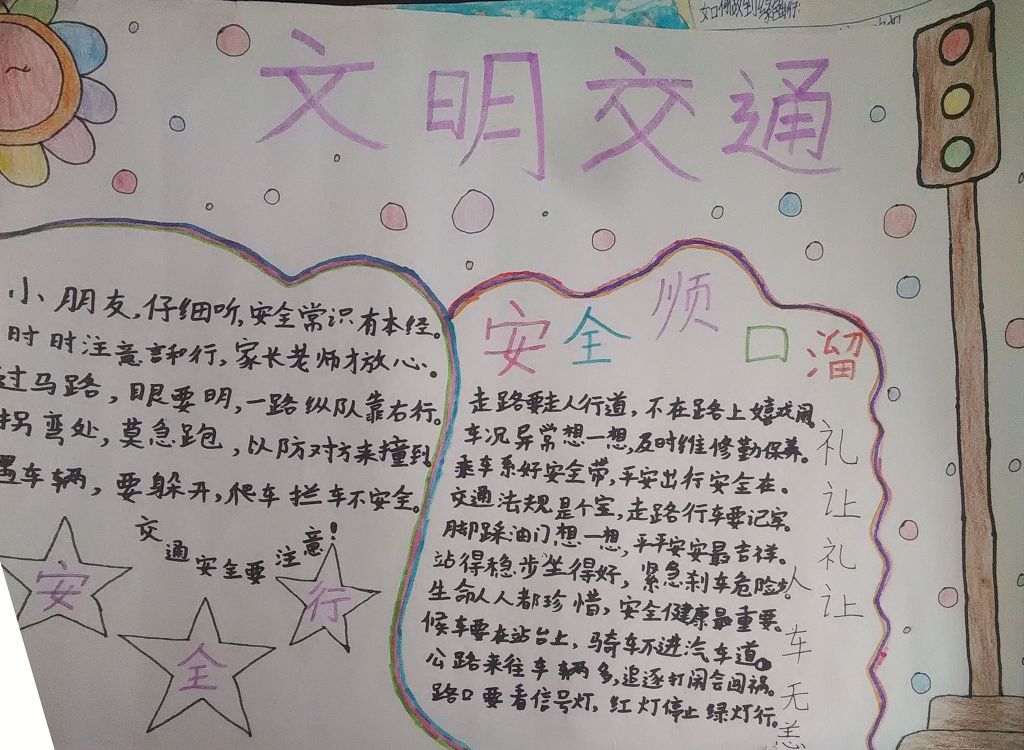 如何做到绿色出行
文明交通
小朋友,仔细听,安全常识有本经。
时时注意言和行,家长老师才放心。
过马路,眼要明,一路纵队靠右行。
拐弯处,莫急跑,以防对方来撞到
遇车辆,要躲开,爬车拦车不安全。
交通安全要注意!
安全行
安全顺口溜
走路要走人行道,不在路上嬉戏闹
车况异常想一想,及时维修勤保养。
乘车系好安全带,平安出行安全在。
交通法规是个宝,走路行车要记牢。
脚踩油门想一想,平平安安最吉祥。
站得稳步坐得好,紧急刹车危险少。
生命人人都珍惜,安全健康最重要。
候车要在站台上,骑车不进汽车道。
公路来往车辆多,追逐打闹会闯祸。
路口要看信号灯,红灯停止绿灯行。
礼让礼让
人车无恙